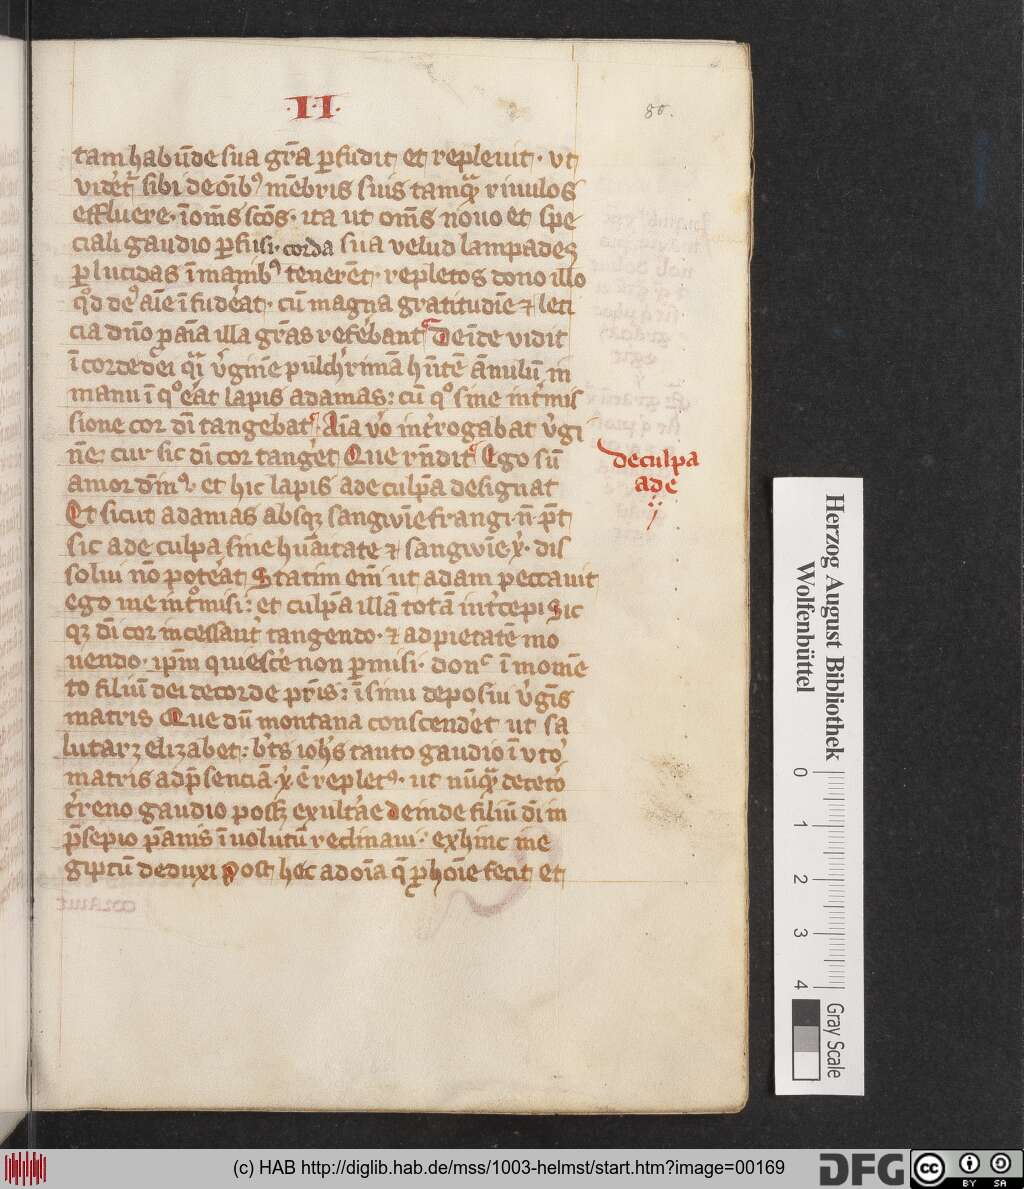 ·II·
80.
tam habūde sua gr̄a ꝑfudit et repleuit · vt
videt᷑ sibi de oīb᷒ mēbris suis tamqᷓ riuulos
effluere · ī om̄s sc̄os · ita ut om̄s nouo et spe
ciali gaudio ꝑfusi · corda sua velud lampades
ꝑlucidas ī manib᷒ tenerēt · repletos dono illo
qd̕ de᷒ aīe īfud̕at · cū magna gratitudīe ⁊ leti
cia dn̄o ꝓ aīa illa gr̄as refer̕bant Deīde vidit
ī corde dei qᷓi v̕ginē pulch̕rimā hn̄tē ānulū in
manu ī qͦ er̕at lapis adamas : cū qͦ sine int̕mis
sione cor dī tangebat · Aīa v̕o int̕rogabat v̕gi
nē : cur sic dī cor tanger̕et Que rn̄dit Ego sū
amor dīn᷒ · et hic lapis ade culpā designat
Et sicut adamas absqꝫ sangwīe frangi · n̄ · p̄t
sic ade culpa sine hūaitate ⁊ sangwīe xᷓ · dis
solui nō poter̕at Statim em̄ ut adam peccauit
ego me int̕misi : et culpā illā totā int̕cepi Sic
qꝫ dī cor incessant̕ tangendo · ⁊ ad pietatē mo
uendo · ip̄m quiescer̕e non ꝑmisi · donᶜ ī momē
to filiū dei de corde pr̄is : ī sinu deposui v̕gīs
matris Que dū montana conscender̕et ut sa
lutarꝫ elizabet : bt̄s ioh̄s tanto gaudio ī vto̕
matris ad p̄senciā xᷓ ē replet᷒ · ut nūqᷓ de ceto̕
t̕reno gaudio posꝫ exultar̕e deinde filiū dī in
p̄sepio pānis īuolutū reclinaui · exhinc in e
giptū deduxi post hec ad oīa q̄ ꝓ hoīe fecit et
de culpa
ade
Herzog August Bibliothek
Wolfenbüttel
0 1 2 3 4
Gray Scale
(c) HAB http://diglib.hab.de/mss/1003-helmst/start.htm?image=00169
DFG
cc
BY SA